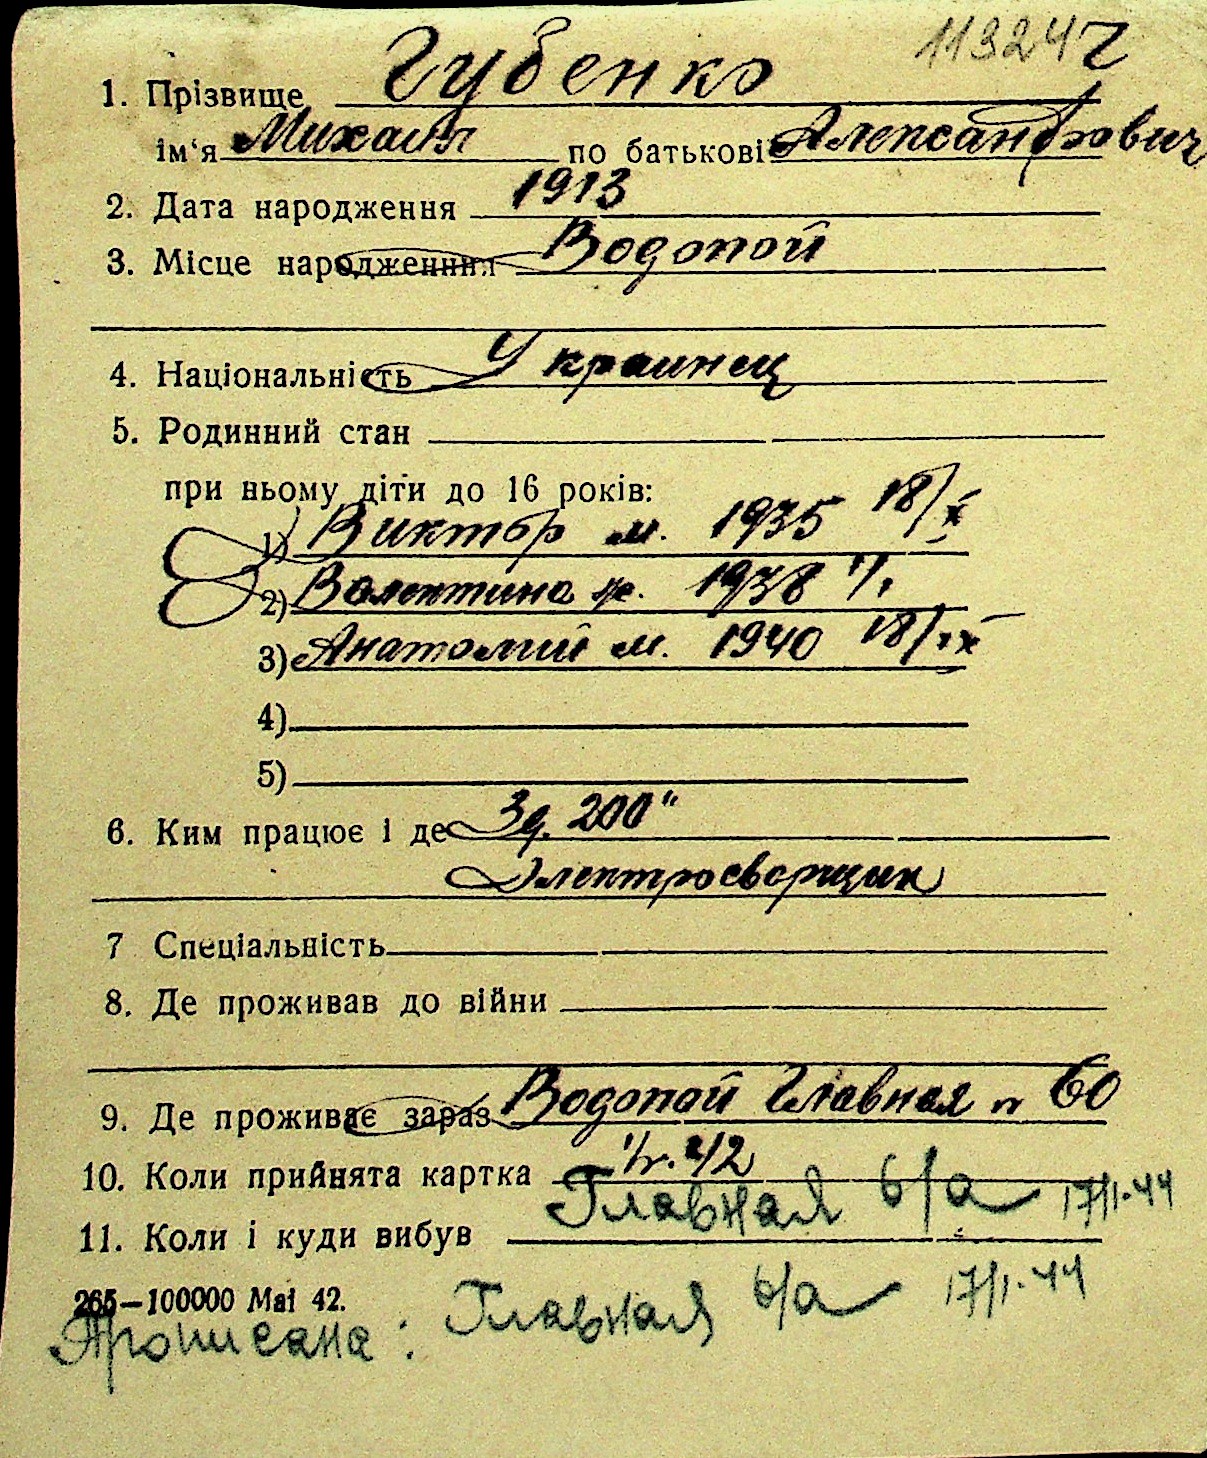 113247
1. Прізвище Губенко
ім'я Михаил по батькові Александрович
2. Дата народження 1913
3. Місце народження Водопой
4. Національність Украинец
5. Родинний стан
при ньому діти до 16 років:
1) Виктор м. 1935 18/X
2) Валентина ж. 1938
3) Анатолий м. 1940 18/IX
4)
5)
6. Ким працює і де Зд. 200"
Электросварщик
7 Спеціальність
8. Де проживав до війни
9. Де проживає зараз Водопой Главная n 60
10. Коли прийнята картка 42
Главная 6/а 17/I-44
11. Коли і куди вибув
265—100000 Mai 42.
Прописана: Главная 6/а 17/I-44